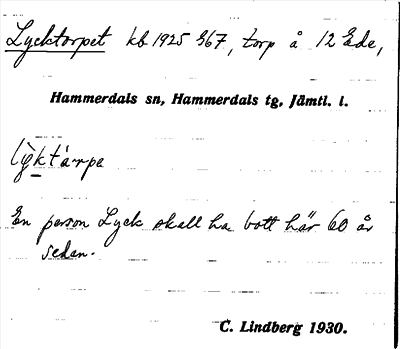 Lycktorpet kb 1925 867, torp å 12 Ede,
Hammerdals sn, Hammerdals tg, Jämtl. l.
En person Lyck skall ha bott här 60 år
sedan.
C. Lindberg 1930.